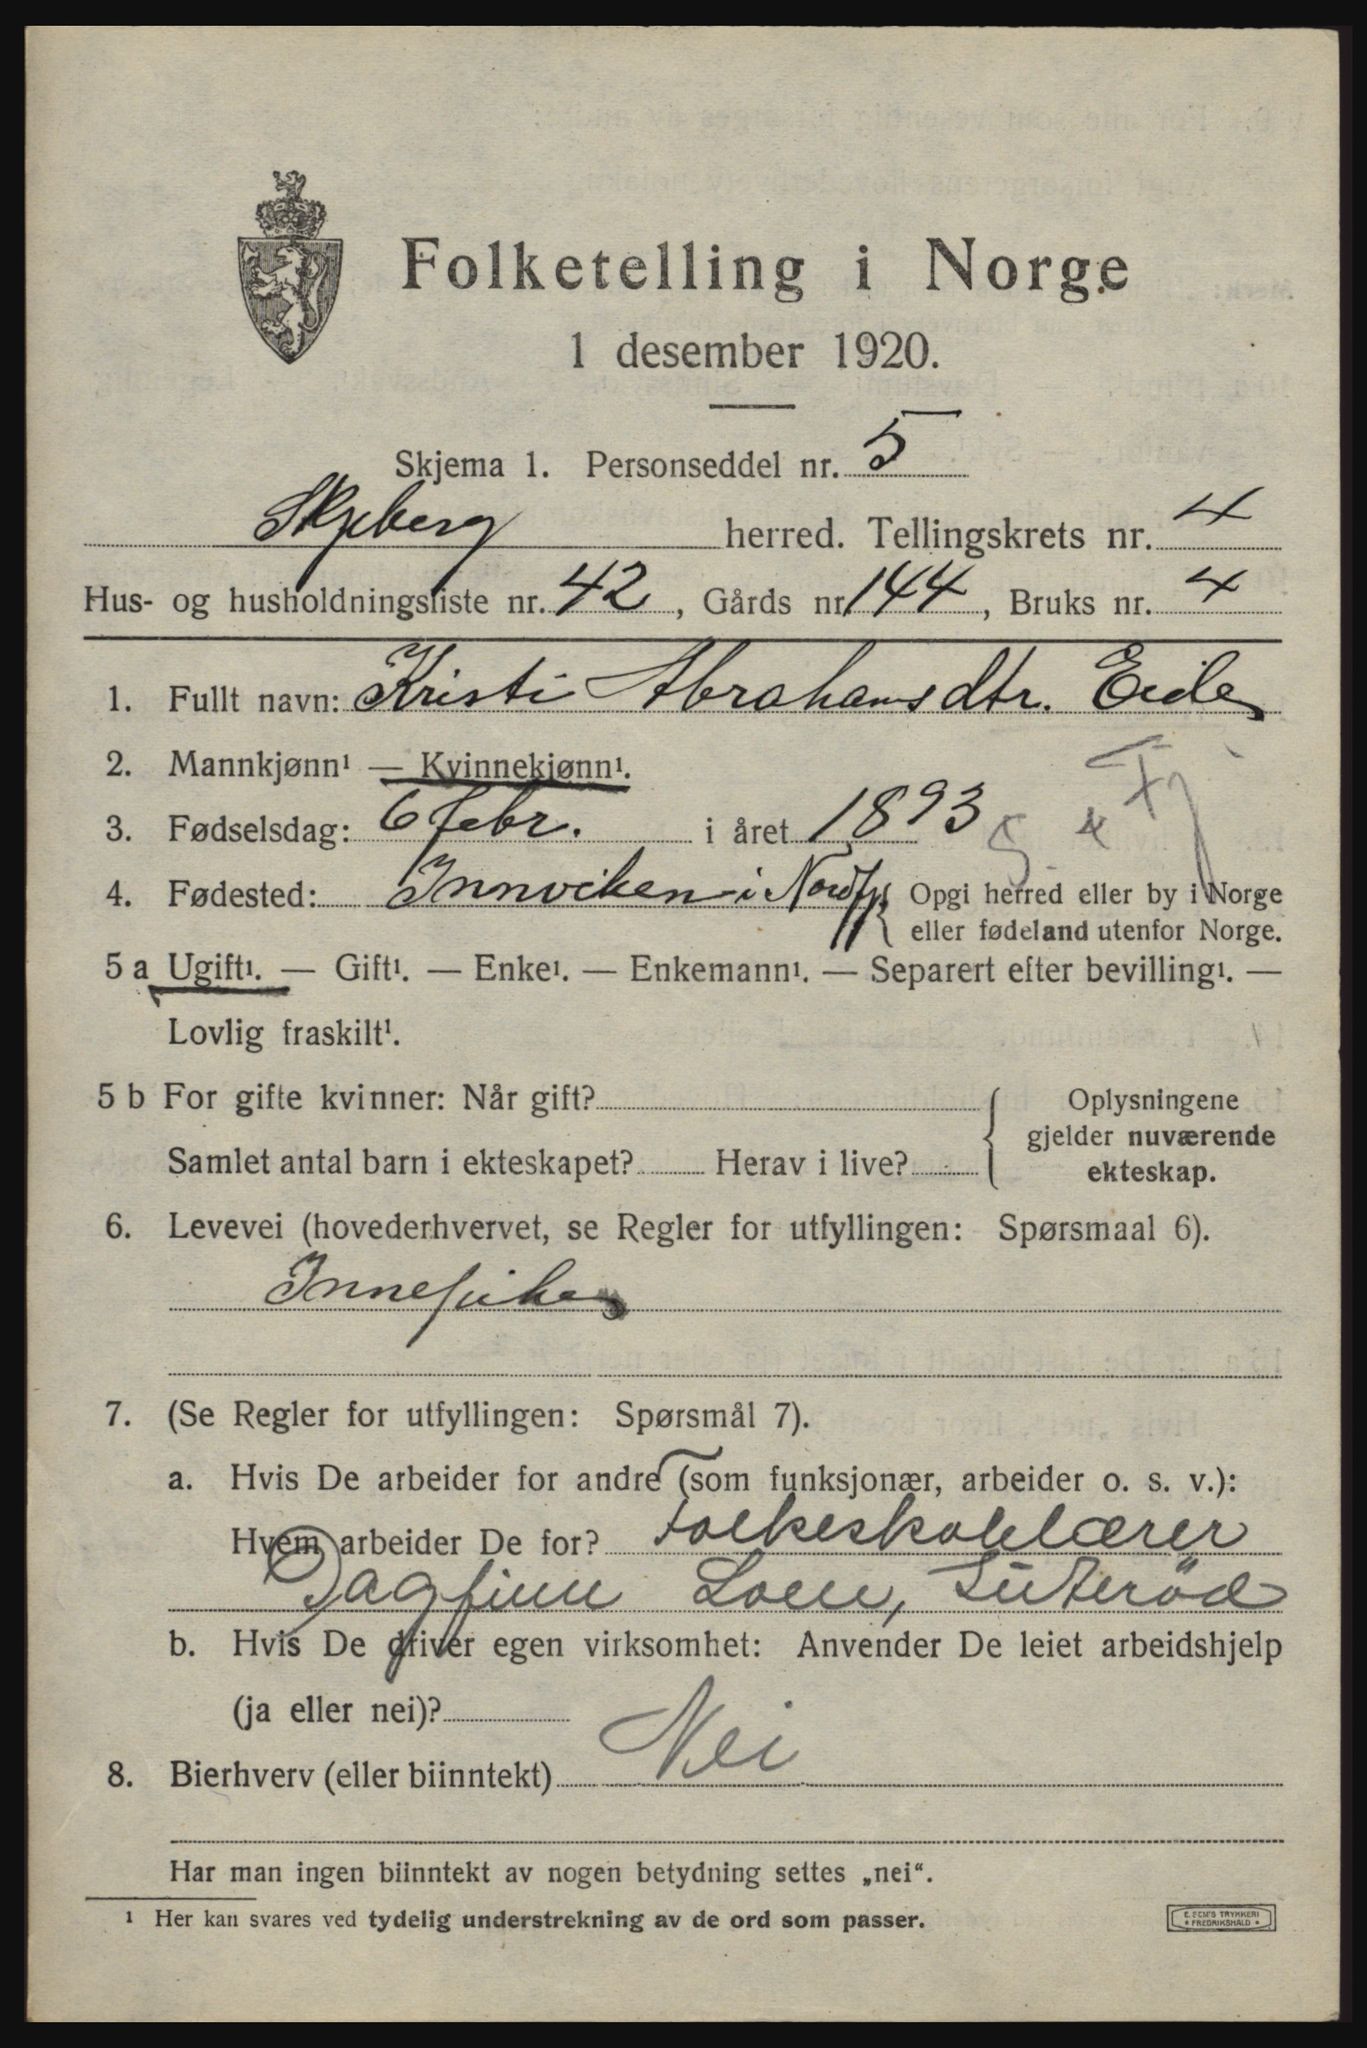 Folketelling i Norge
1 desember 1920.
Skjema 1. Personseddel nr. 5
Skjeberg herred. Tellingskrets nr. 4
Hus- og husholdningsliste nr. 42, Gårds nr. 144, Bruks nr. 4
1. Fullt navn: Kristi Abrahamsdtr. Eide
2. Mannkjønn¹ — Kvinnekjønn¹.
3. Fødselsdag: 6 febr. i året 1893
4. Fødested: Innviken i Nordfj. { Opgi herred eller by i Norge
eller fødeland utenfor Norge.
5 a Ugift¹. — Gift¹. — Enke¹. — Enkemann¹. — Separert efter bevilling¹. —
Lovlig fraskilt¹.
5 b For gifte kvinner: Når gift?
Samlet antal barn i ekteskapet? Herav i live?
Oplysningene
gjelder nuværende
ekteskap.
6. Levevei (hovederhvervet, se Regler for utfyllingen: Spørsmaal 6).
Innepike
7. (Se Regler for utfyllingen: Spørsmål 7).
a. Hvis De arbeider for andre (som funksjonær, arbeider o. s. v.):
Hvem arbeider De for? Folkeskolelærer
Dagfinn Loen,
b. Hvis De driver egen virksomhet: Anvender De leiet arbeidshjelp
(ja eller nei)?
8. Bierhverv (eller biinntekt) Nei
Har man ingen biinntekt av nogen betydning settes „nei“.
¹ Her kan svares ved tydelig understrekning av de ord som passer.
E. SEM'S TRYKKERI
* FREDRIKSHALD *